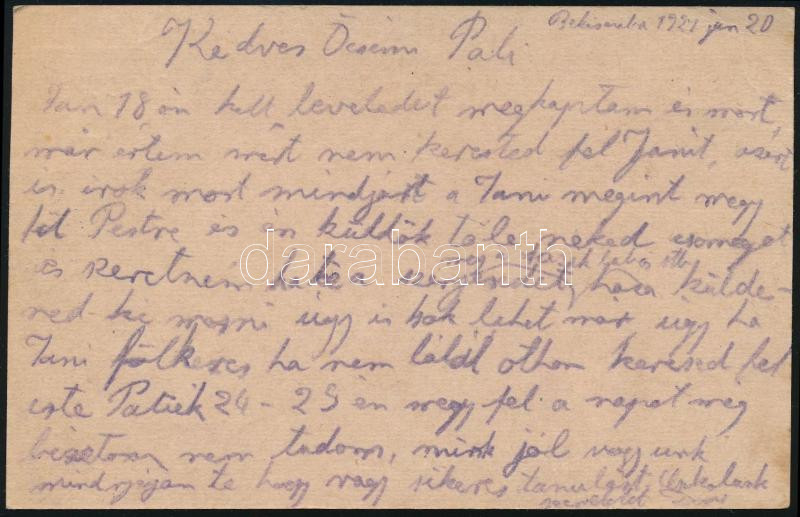 1921 jan 20
Kedves Öcsém Pali
Jan 18 án kelt leveledet megkaptam és most
már értem mért nem kerested fel Janit, azért
is irok most mindjárt a Jani megint megy
fel Pestre és én küldök tőle neked csomagot
és szeretném ha a haza külde-
ned ki mosni úgy is sok lehet már úgy ha
Jani fölkeres ha nem talál othon keresed fel
este 24 - 25 én megy fel a napot még
nem tudom, mink jól vagyunk
mindnyájan te hogy vagy sikeres tanulást
szeretettel Jani
darabanth